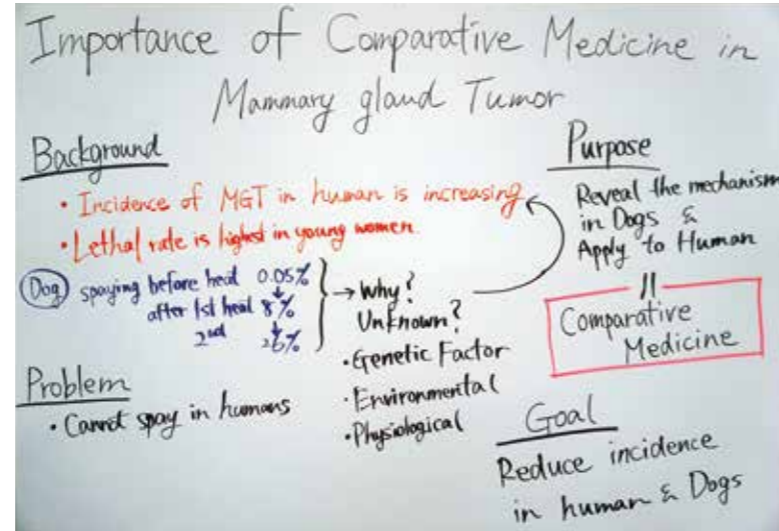 Importance of Comparative Medicine in
Mammary gland Tumor
Background
• Incidence of MGT in human is increasing
• Lethal rate is highest in young women.
Dog spaying before heat 0.05%
after 1st heat 8%
2nd 26%
→ Why?
Unknown?
• Genetic Factor
• Environmental
• Physiological
Problem
• Cannot spay in humans
Purpose
Reveal the mechanism
in Dogs &
Apply to Human
Comparative
Medicine
Goal
Reduce incidence
in human & Dogs